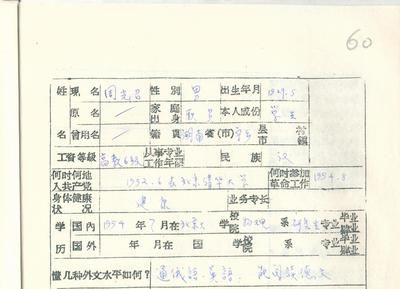 60
姓 现名 周光召 性别 男 出生年月 1929.5
原名 家庭出身 职员 本人成份 学生
名 曾用名 籍贯 湖南省(市) 县市 镇
工资等级 高教6级 从事专业工作年限 民族 汉
何时何地入共产党 1952.6 在北京清华大学 何时参加革命工作 1954.8
身体健康状况 健康 业务专长
学 国内 1954年7月在北京大 校院 物理系 研究生 专业 毕业肄业
历 国外 年 月在 国 学院 系 专业 毕业肄业
懂几种外文水平如何? 通俄語、英語